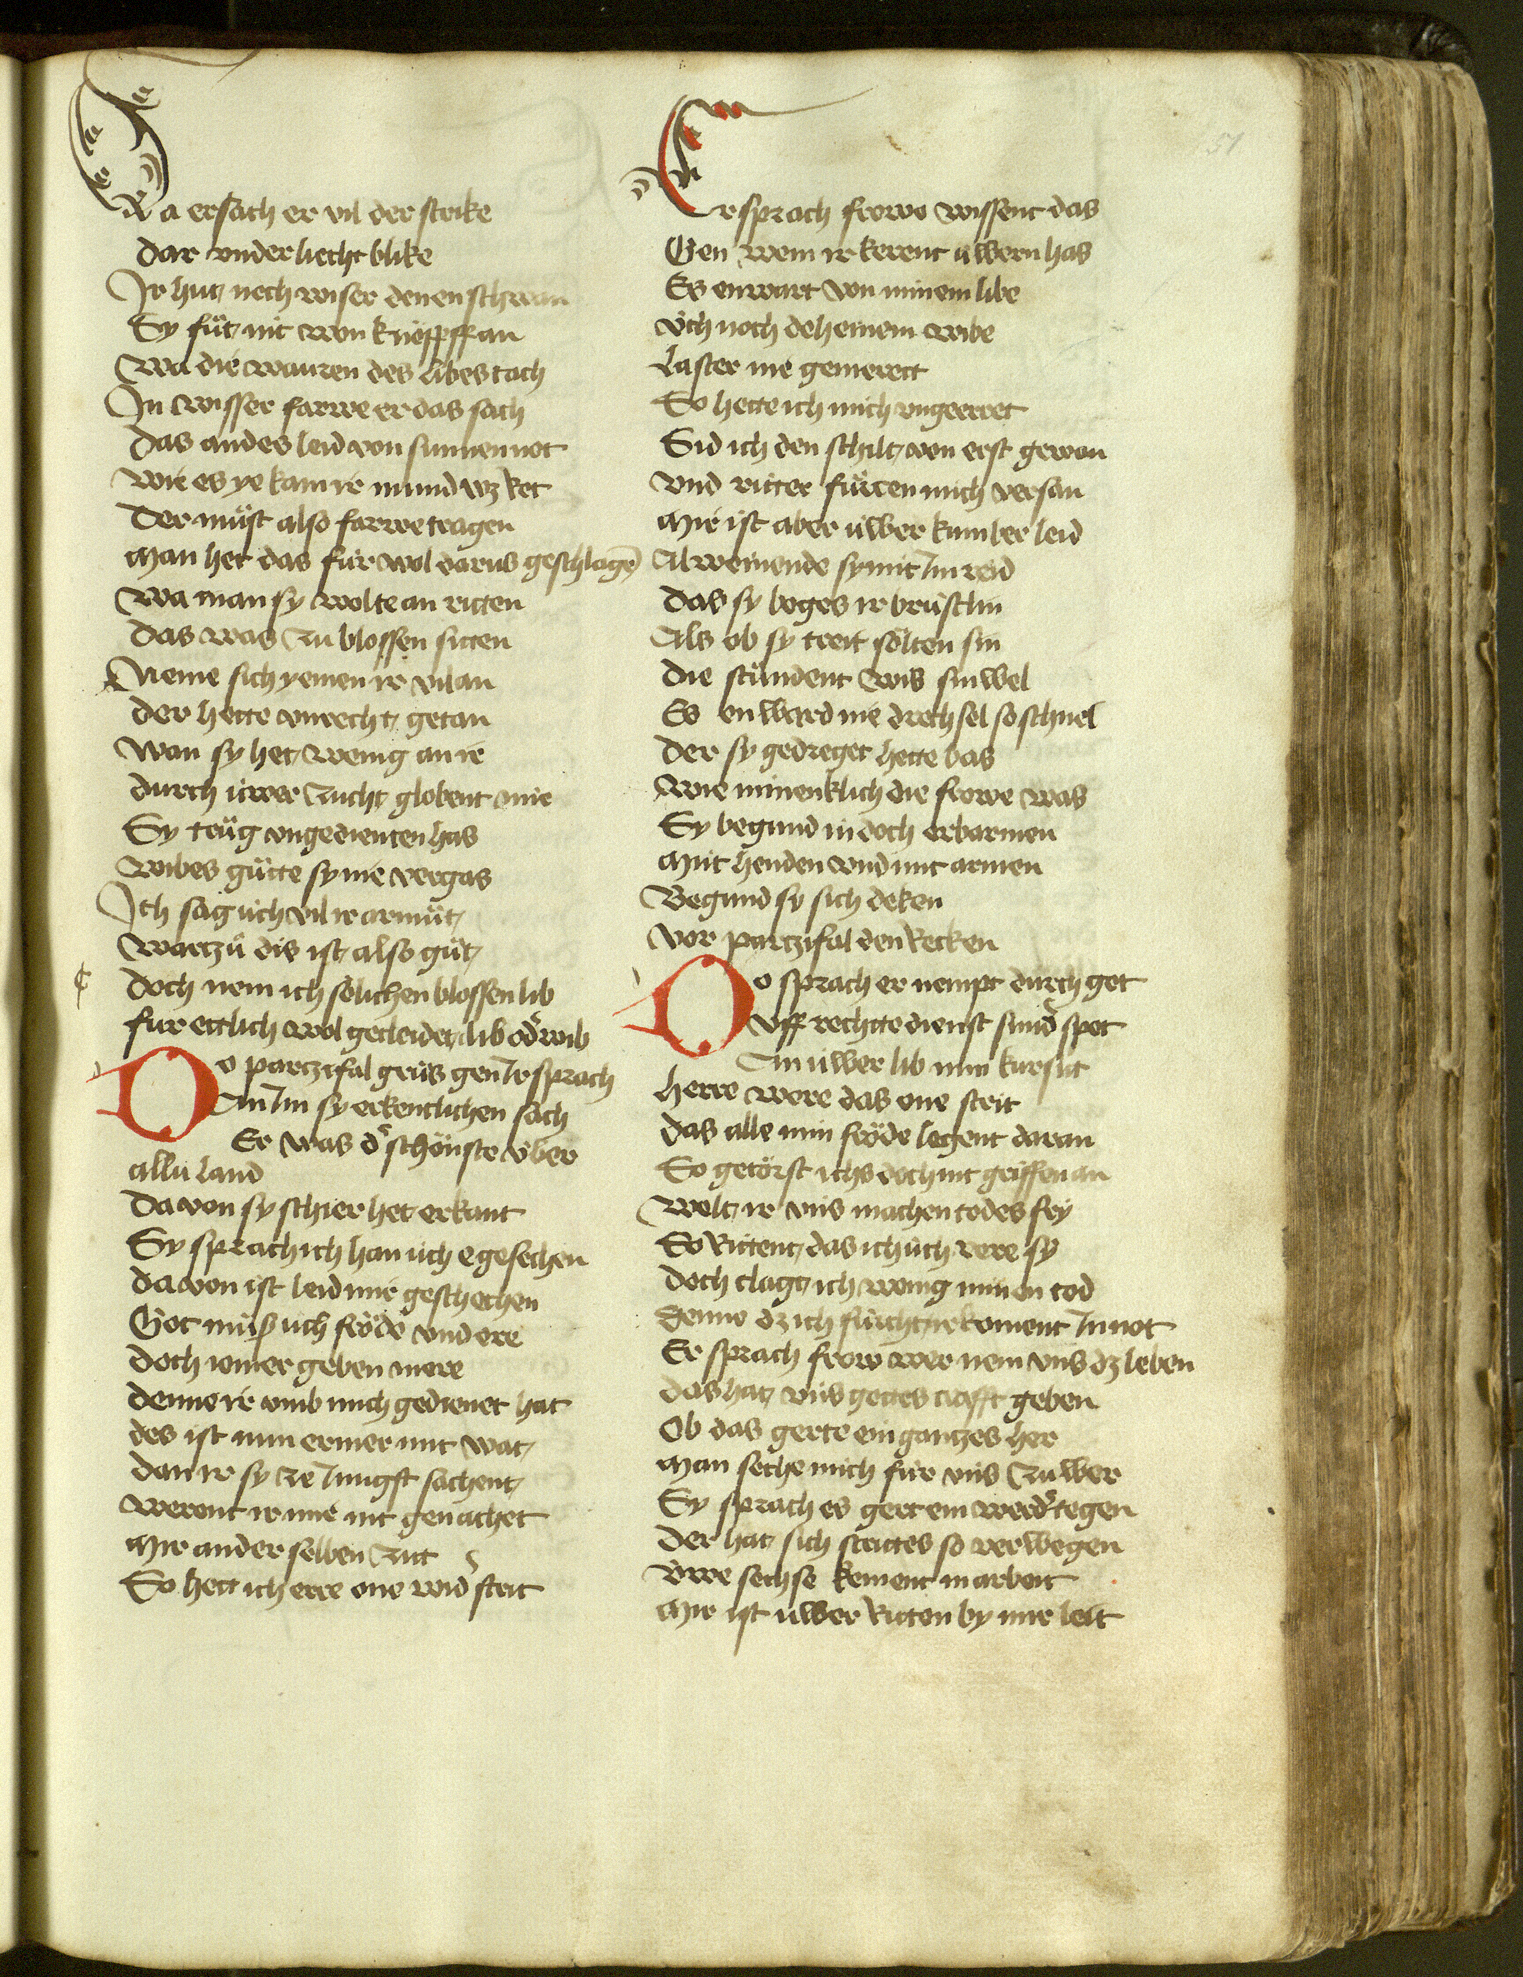 Da ersach er vil der strike
Dar vnder liecht blike
Ir hut noch wiser denen schwan
Sy fůt nit won knöpff an
Wa die wauren des libes tach
In wisser farwe er das sach
Das andes leid von sunnen not
Wie es ye kam ir mund wz rot
Der můst also farwe tragen
Man het das für wol darus geschlagē
Wa man sy wolte an ritten
Das was zu blossen sitten
Neme sich yemen ir vil an
Der hette vnrecht getan
Wan sy het wenig an ir
Durch üwer zucht globent mir
Sy trůg vngedienten has
Wibes gůtte sy nie vergas
Ich sag üch vil ir armůt
Warzů dis ist also gůt
Doch nem ich sölichen blossen lib
Fur ettlich wol gecleidet lib od̾ wib
Do parczifal grůs gen Ir sprach
An Im sy erkentlichen sach
Er was d̾ schönste über
allü land
Da von sy schier het erkant
Sy sprach ich han üch e gesechen
Da von ist leid mir geschechen
Got můß üch fröde vnd ere
Doch iomer geben mere
Denne ir vmb mich gedienet hat
Des ist min ermer mit wat
Dan ir sy ze Jungst sachent
Werent ir mir nit genachet
Mir an der selben zitt
So hett ich erre one wid̾ strit
Er sprach frowe wissent das
Gen wem ir kerent üwern has
Es enwart von minem libe
Üch noch deheinem wibe
Laster nie gemerett
So hette ich mich vngeerret
Sid ich den schilt von erst gewan
Vnd ritter fůrten mich versan
Mir ist aber üwer kumber leid
Al weinende sy mit Im reid
Das sy beges ir brüstlin
Als ob sy treit sölten sin
Die stůndent wis sinwel
Es en ward nie drechsel so schnel
Der sy gedreget hette bas
Wie minenklich die frowe was
Sy begund in doch erbarmen
Mit henden vnd mit armen
Begund sy sich deken
Vor parczifal den Recken
Do sprach er nempt durch got
Vff rechtte dienst sund̾ spot
An üwer lib min kursit
Herre were das one strit
Das alle min fröde legent daran
So getörst ichs doch nit griffen an
Welt ir vns machen todes fry
So Rittent das ich üch vere sy
Doch clagt ich wenig minen tod
Denne dz ich fürcht ir koment In not
Er sprach frow wer nem vns dz leben
Das hat vns gottes crafft geben
Ob das gerte ein gantzes her
Man seche mich für vns zu wer
Sy sprach es gert ein werd̾ tegen
Der hat sich strittes so verwegen
Üwe sechse kement in arbeit
Mir ist üwer Ritten by mir leit